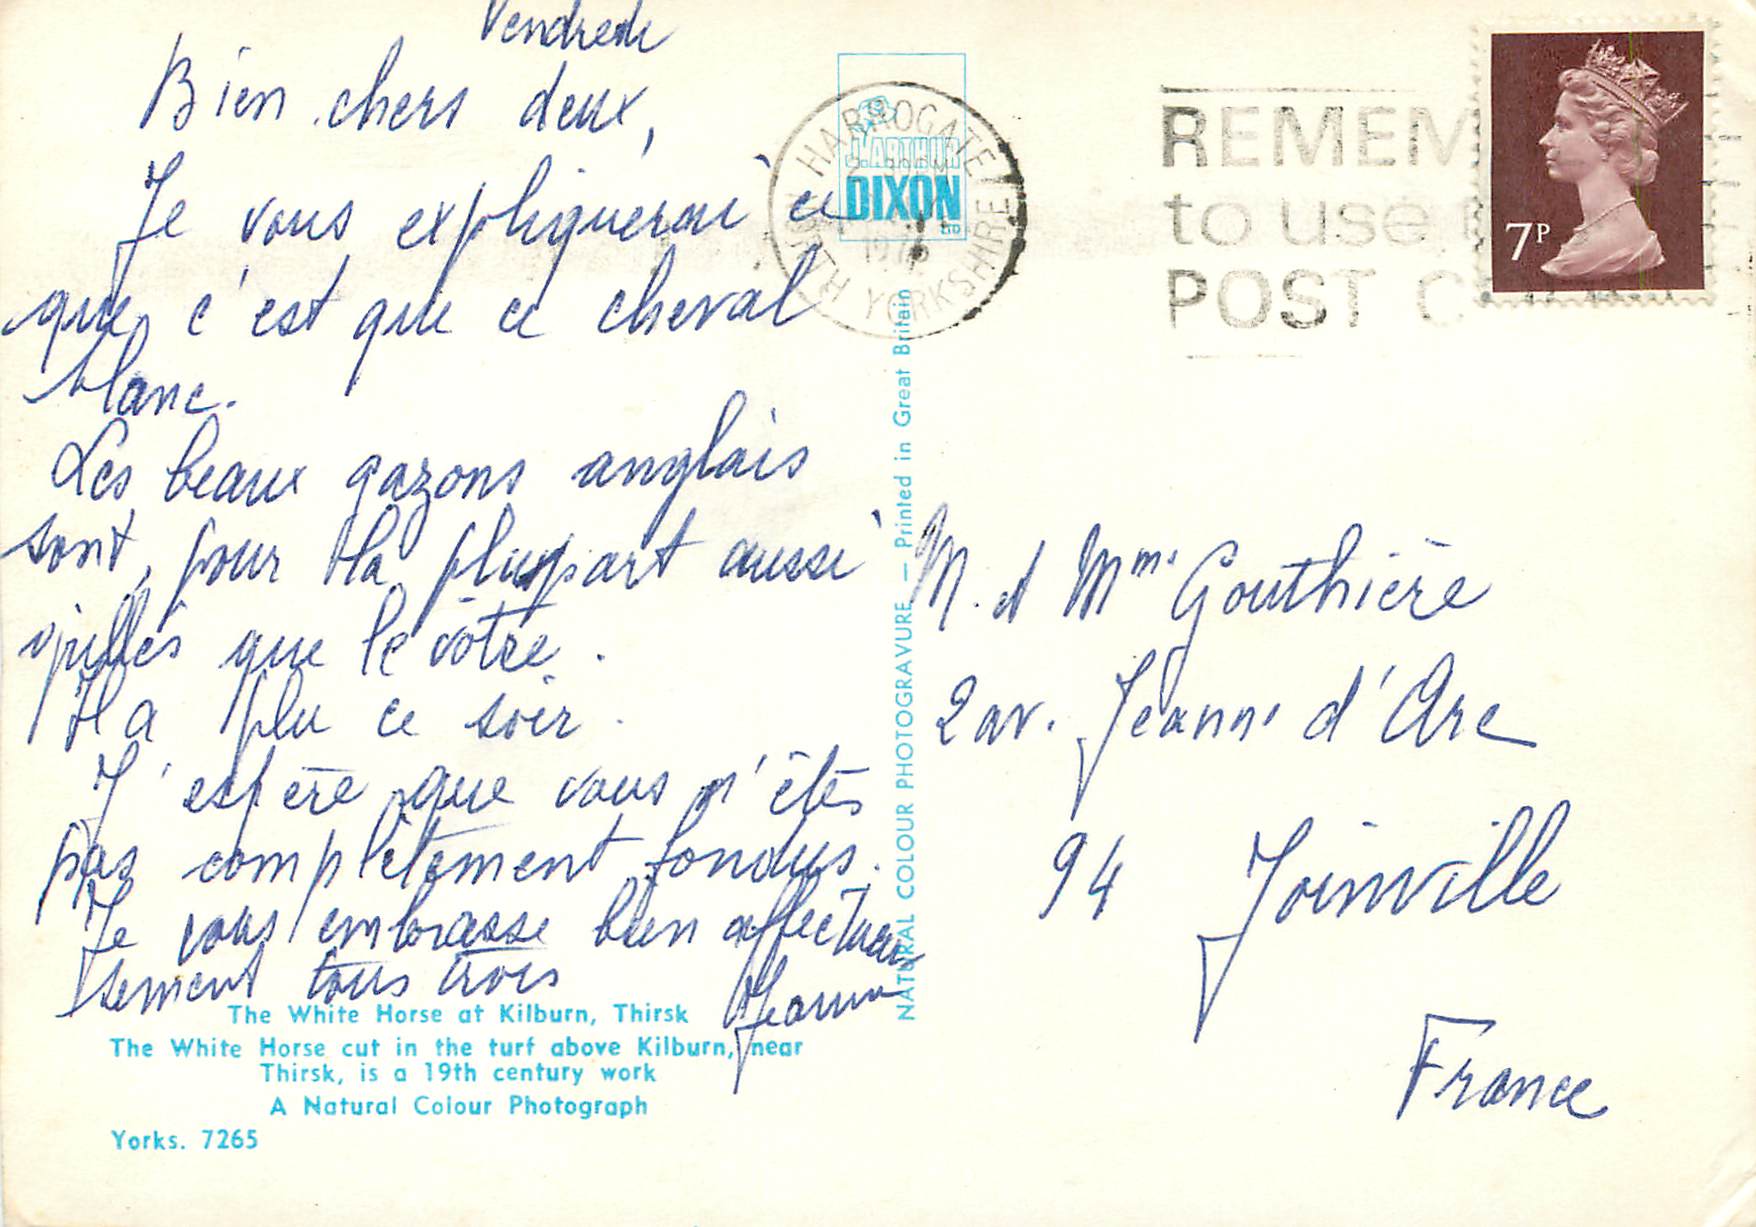 Vendredi
Bien chers deux,
Je vous expliquerai ce
que c'est que ce cheval
blanc.
Les beaux gazons anglais
sont, pour la plupart aussi
grillés que le vôtre.
Il a plu ce soir.
J'espère que vous n'êtes
pas complètement fondus.
Je vous embrasse bien affectueu
sement tous trois
The White Horse at Kilburn, Thirsk
The White Horse cut in the turf above Kilburn, near
Thirsk, is a 19th century work
A Natural Colour Photograph
Yorks. 7265
J. ARTHUR
DIXON
HARROGATE
NORTH YORKSHIRE
NATURAL COLOUR PHOTOGRAVURE — Printed in Great Britain
REMEM
to use
POST C
7P
M. et Mme Gouthière
2 av. Jeanne d'Arc
94 Joinville
France